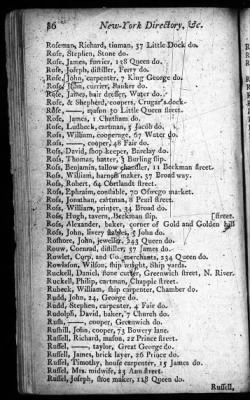 86 New-York Directory, &c.
Roseman, Richard, tinman, 37 Little Dock do.
Rose, Stephen, Stone do.
Rose, James, furrier, 128 Queen do.
Rose, Joseph, distiller, Ferry do.
Rose, John, carpenter, 7 King George do.
Rose, John, currier, Banker do.
Rose, James, hair dresser, Water do.
Rose, & Shepherd, coopers, Crugar's dock
Rose ——, mason 50 Little Queen street.
Rose, James, 1 Chatham do.
Ross, Ludbeck, cartman, 5 Jacob do.
Ross, William, cooperage, 67 Water do.
Ross, ——, cooper, 48 Fair do.
Ross, David, shop-keeper, Barclay do.
Ross, Thomas, hatter, 3 Burling slip.
Ross, Benjamin, tallow chandler, 11 Beekman street.
Ross, William, harness maker, 37 Broad way.
Ross, Robert, 64 Cortlandt street.
Ross, Ephraim, constable, 70 Oswego market.
Ross, Jonathan, cartman, 8 Pearl street.
Ross, William, printer, 34 Broad do.
Ross, Hugh, tavern, Beekman slip. [street.
Ross, Alexander, baker, corner of Gold and Golden hill
Ross, John, livery stables, 5 John do.
Roshore, John, jeweller, 243 Queen do.
Rouw, Conrad, distiller, 37 James do.
Rowlet, Corp. and Co. merchants, 234 Queen do.
Rowlsson, Wilson, ship wright, Ship yards.
Ruckell, Daniel, stone cutter, Greenwich street, N. River.
Ruckell, Philip, cartman, Chapple street.
Rubeck, William, ship carpenter, Chamber do.
Rudd, John, 24, George do.
Rudd, Stephen, carpenter, 4 Fair do.
Rudolph, David, baker, 7 Church do.
Russ, ——, cooper, Greenwich do.
Rushill, John, cooper, 73 Bowery lane.
Russell, Richard, mason, 22 Prince street.
Russel, ——, taylor, Great George do.
Russell, James, brick layer, 26 Prince do.
Russel, Timothy, house carpenter, 15 James do.
Russel, Mrs. midwife, 23 Ann street.
Russel, Joseph, shoe maker, 128 Queen do.
Russell,